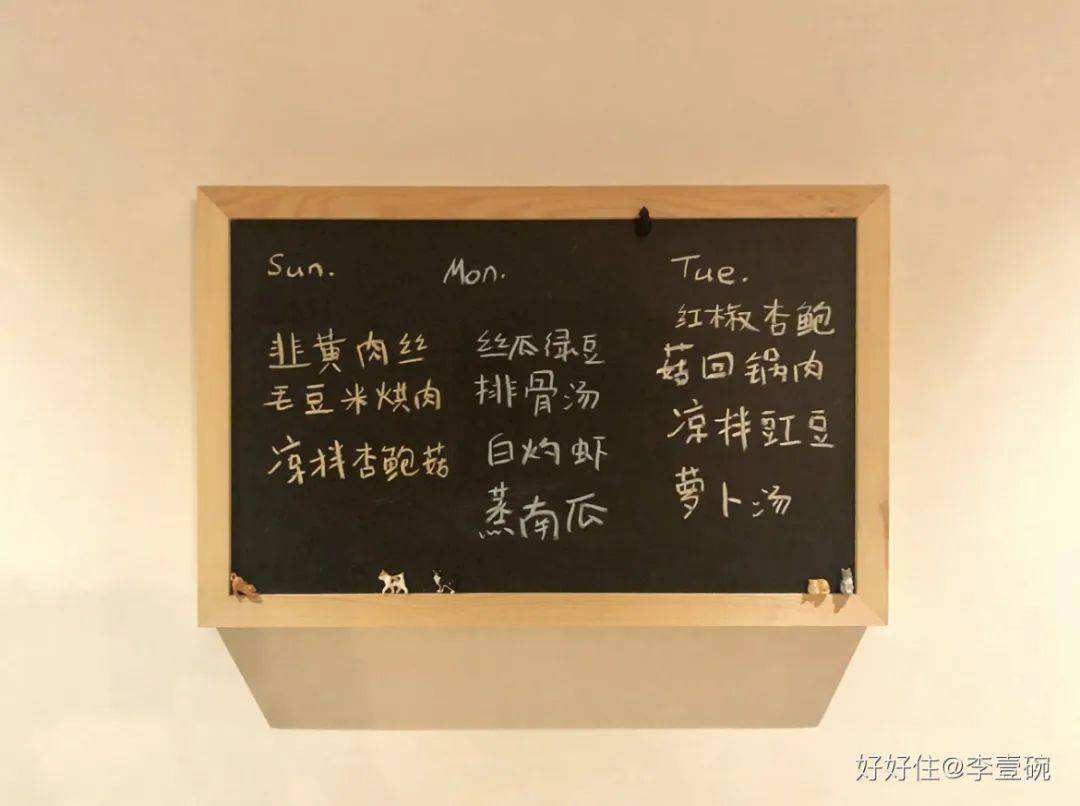 Sun.
韭黄肉丝
毛豆米烘肉
凉拌杏鲍菇
Mon.
丝瓜绿豆
排骨汤
白灼虾
蒸南瓜
Tue.
红椒杏鲍
菇回锅肉
凉拌豇豆
萝卜汤
好好住@李壹碗